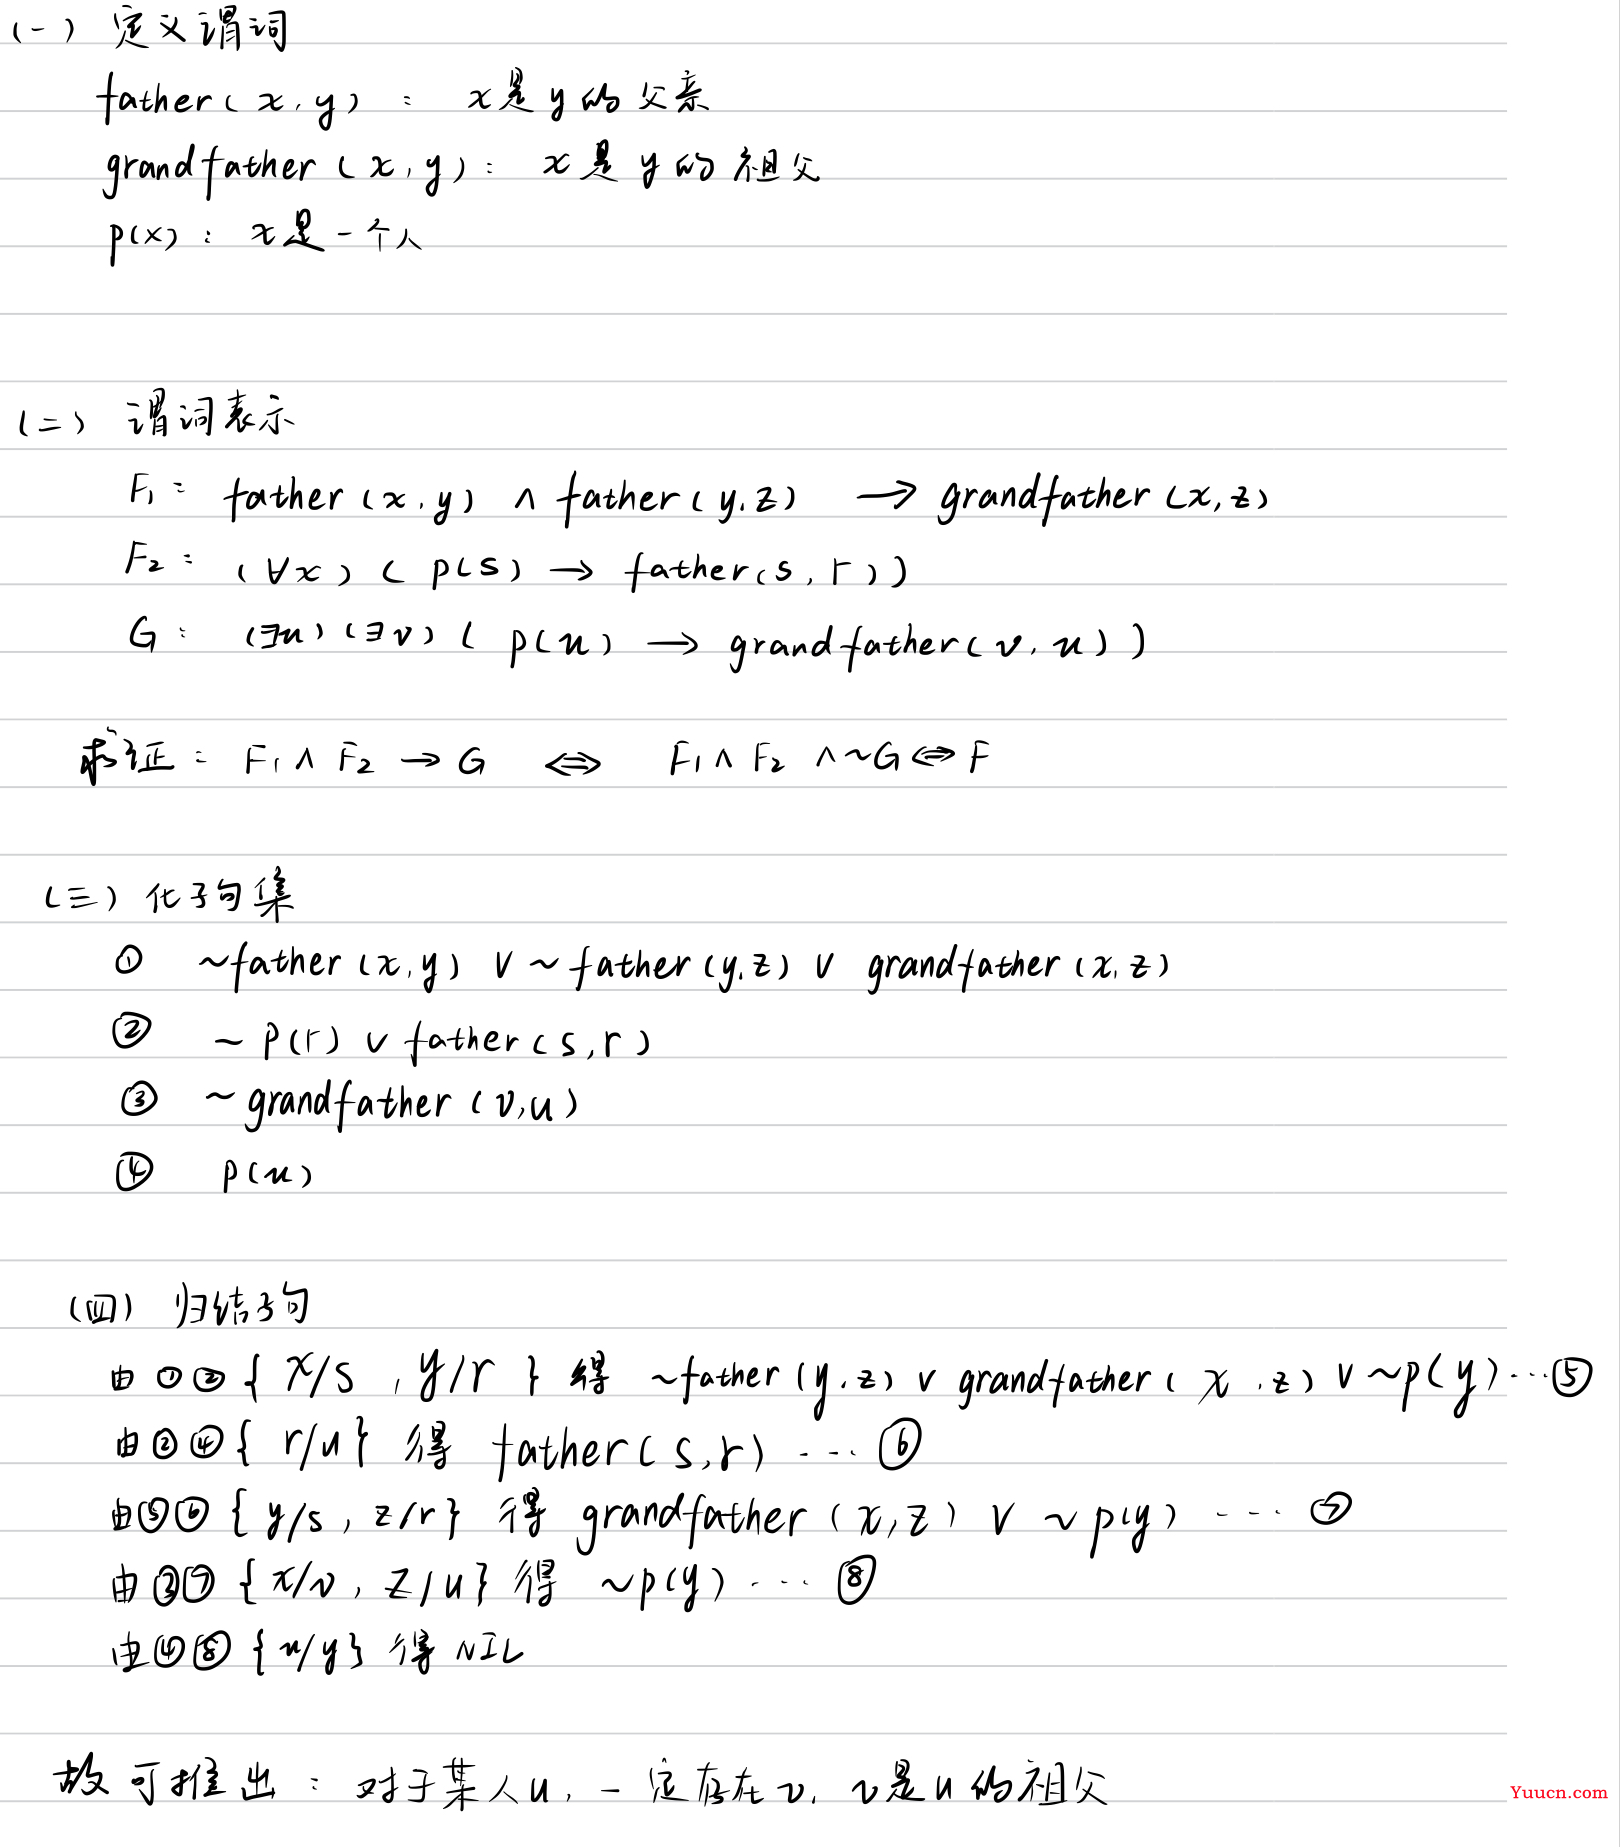 (一) 定义谓词
father(x,y) : x是y的父亲
grandfather(x,y): x是y的祖父
p(x): x是一个人
(二) 谓词表示
F₁: father(x,y) ∧ father(y,z) → grandfather(x,z)
F₂: (∀x)( p(s) → father(s,r))
G: (∃u)(∃v)( p(u) → grandfather(v,u))
求证: F₁∧F₂→G ⇔ F₁∧F₂∧~G⇔F
(三) 化子句集
① ~father(x,y) ∨ ~father(y,z) ∨ grandfather(x,z)
② ~p(r) ∨ father(s,r)
③ ~grandfather(v,u)
④ p(u)
(四) 归结子句
由①②{ x/s , y/r } 得 ~father(y,z) ∨ grandfather(x,z) ∨ ~p(y)···⑤
由②④{ r/u} 得 father(s,r) ···⑥
由⑤⑥{ y/s, z/r} 得 grandfather(x,z) ∨ ~p(y) ···⑦
由③⑦{x/v, z/u} 得 ~p(y) ···⑧
由④⑧{u/y} 得 NIL
故可推出: 对于某人u, 一定存在v, v是u的祖父
Yuucn.com